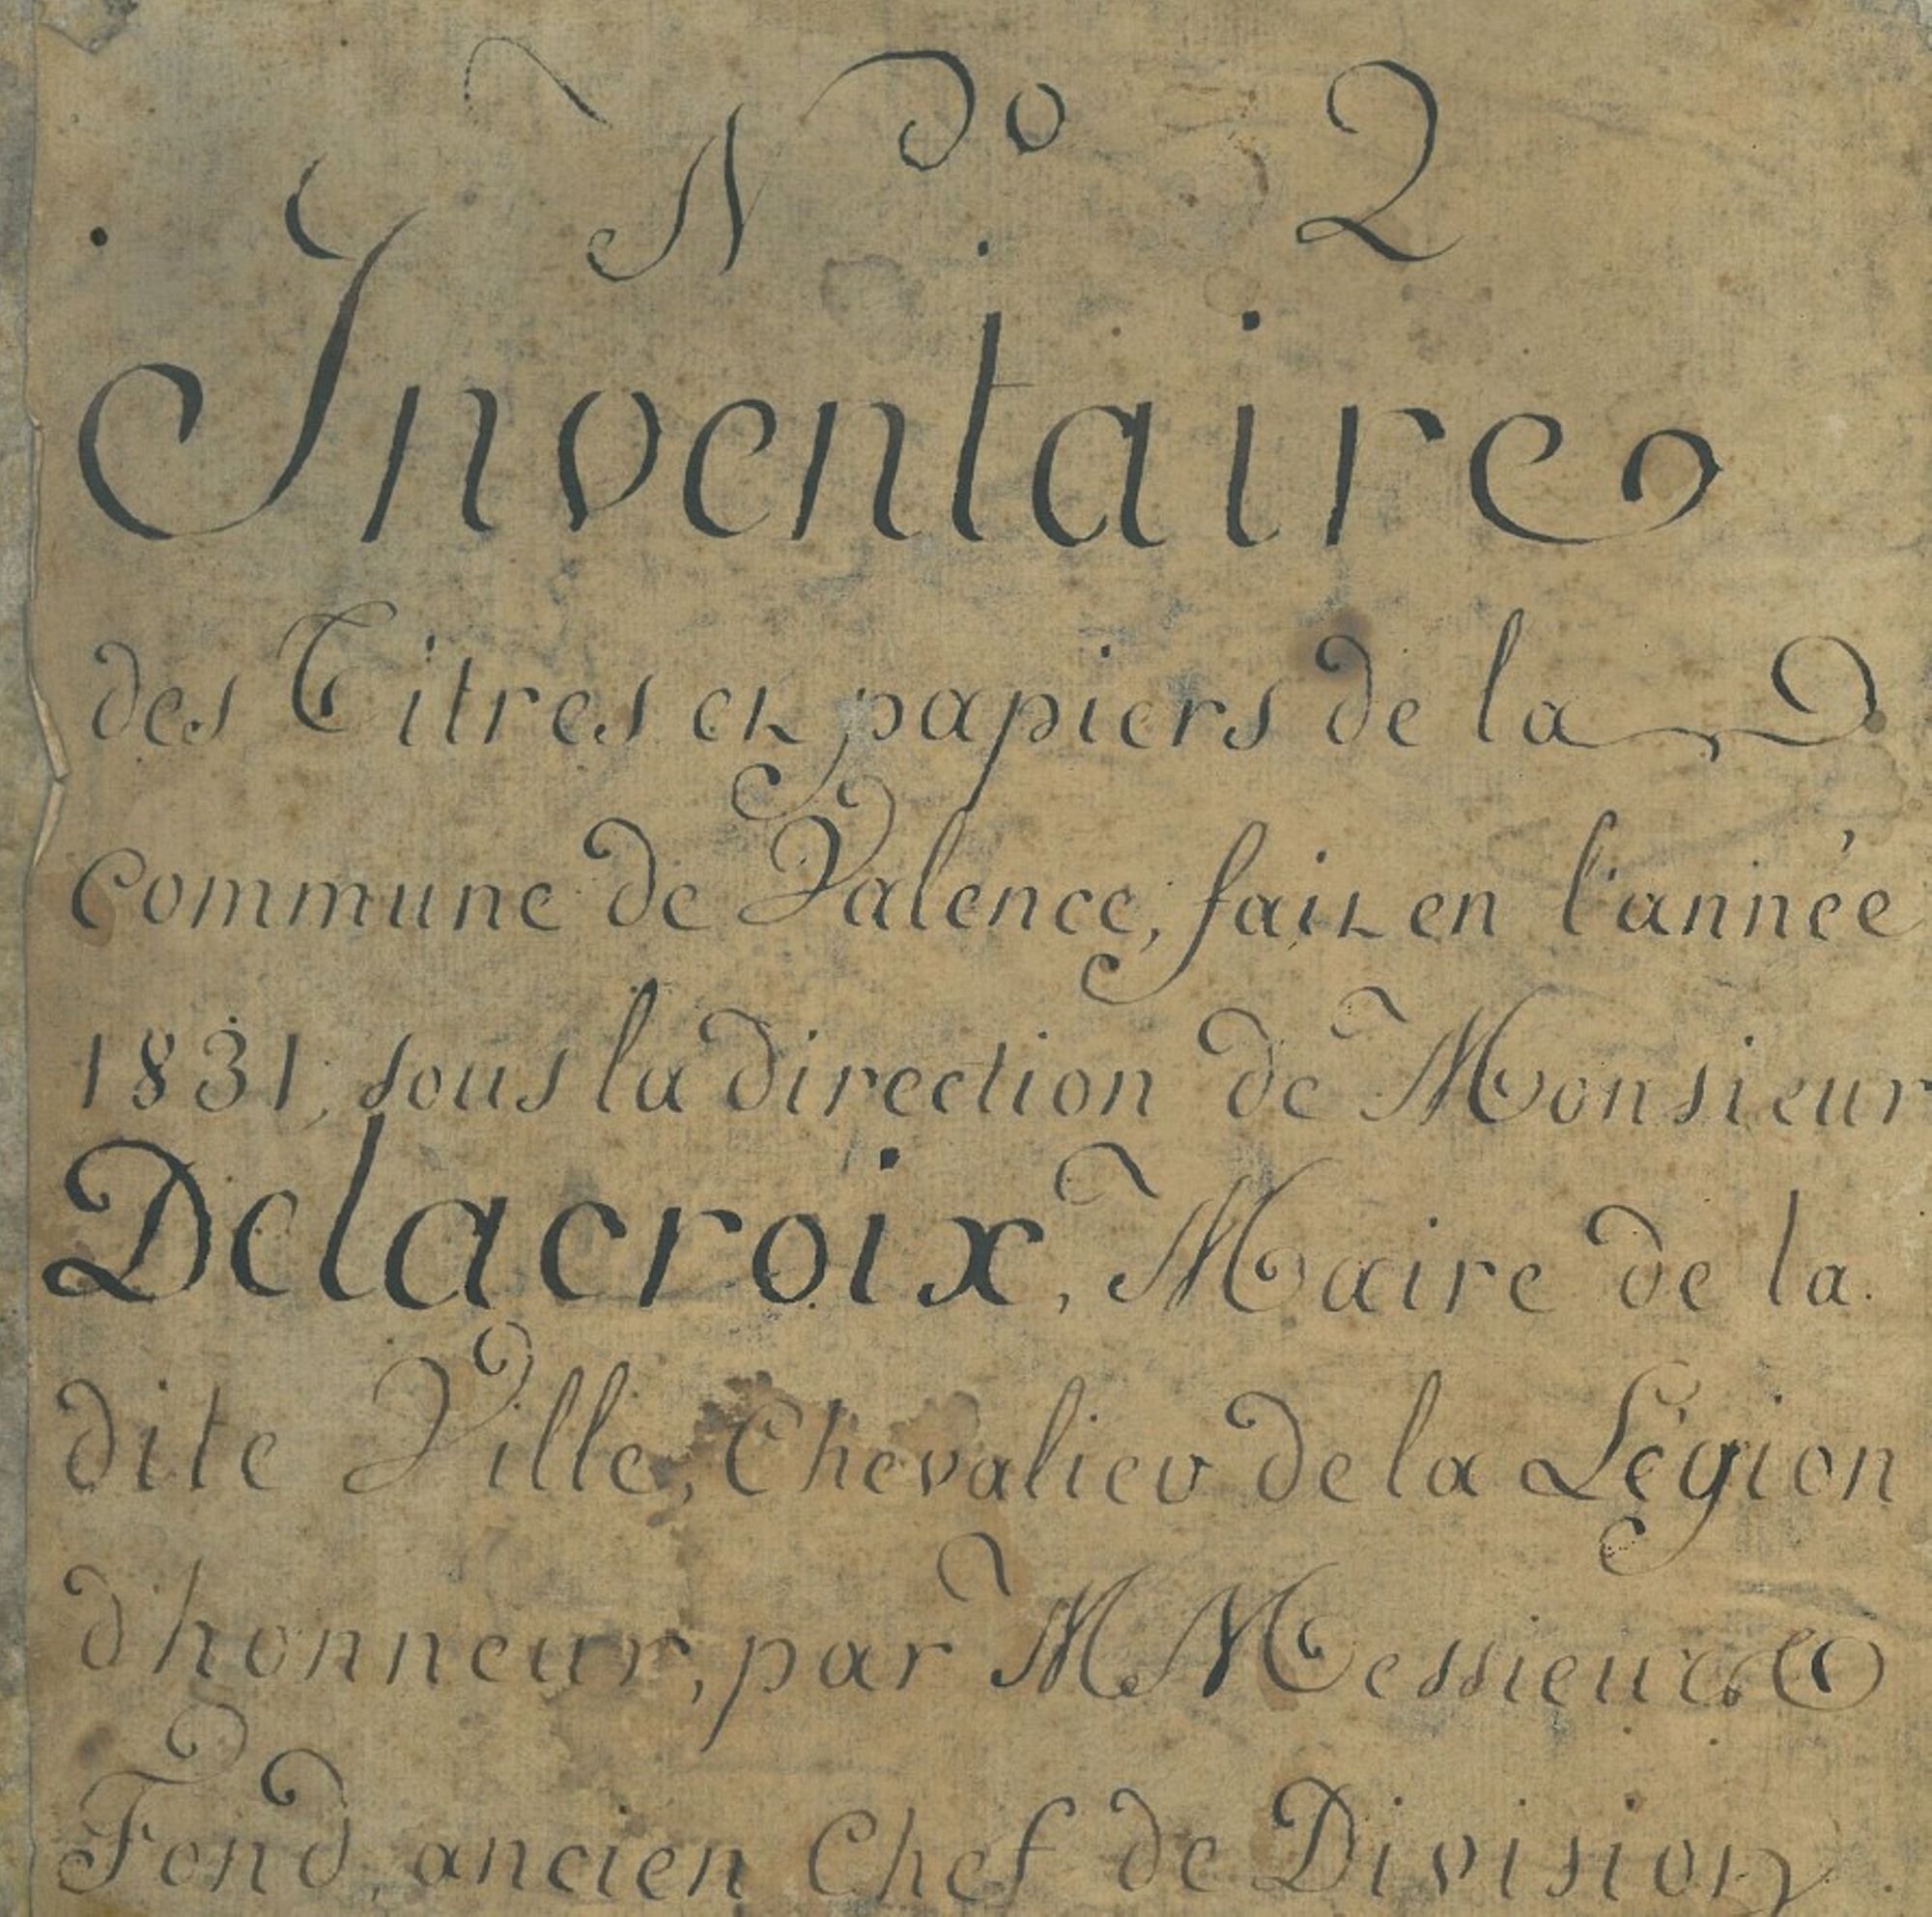 No. 2
Inventaire
des Titres et papiers de la
Commune de Valence, fait en l'année
1831, sous la direction de Monsieur
Delacroix, Maire de la
dite Ville, Chevalier de la Légion
d'honneur, par MMessieurs
Fond, ancien Chef de Division